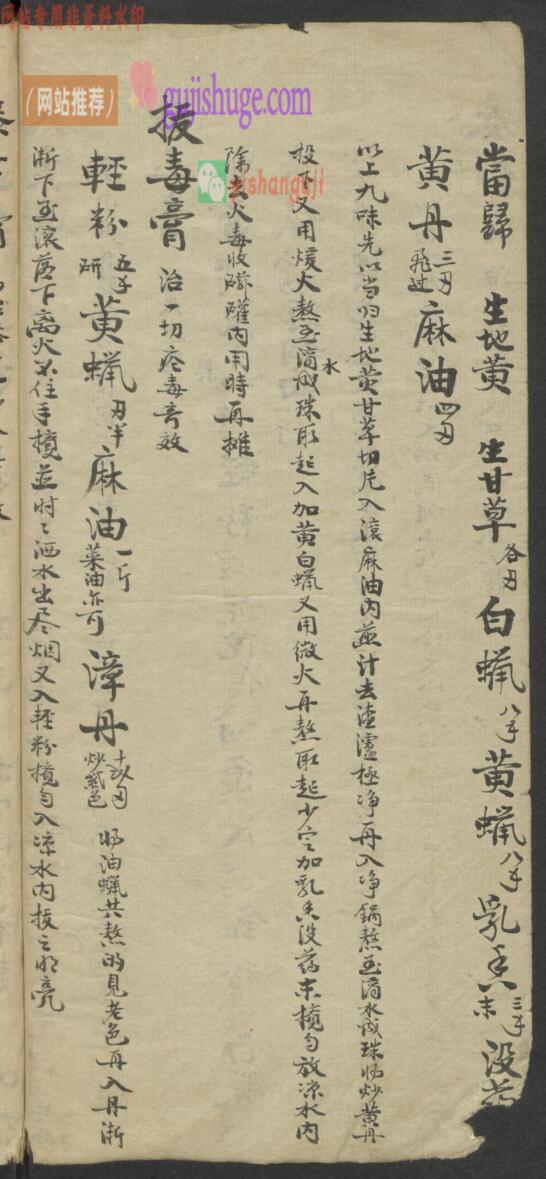 网站专用非资料水印
（网站推荐）
gujishuge.com
jishangeji
當歸 生地黄 生甘草各刄 白蜡八子 黄蜡八子 乳香三子末 没
黄丹三刄飛过 麻油四刄
以上九味先以当归生地黄甘草切片入滚麻油内煎汁去渣瀘極净再入净鍋熬至滴水成珠将炒黄丹
投下又用煖火熬至滴水成珠取起入加黄白蜡又用微火再熬取起少定加乳香没药末搅匀放凉水内
除去火毒收磁罐内用時再摊
拔毒膏 治一切疮毒奇效
輕粉五子研 黄蜡刄半 麻油一斤菜油亦可 漳丹炒紫色 将油蜡共熬的見老色再入丹漸
漸下至滚落下离火不住手搅並时々洒水出尽烟又入輕粉搅匀入凉水内拔之明亮